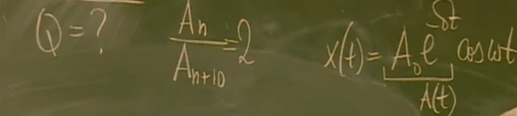 Q = ? A_n / A_{n+10} = 2 x(t) = A_0 e^{-δt} cos ωt
A(t)